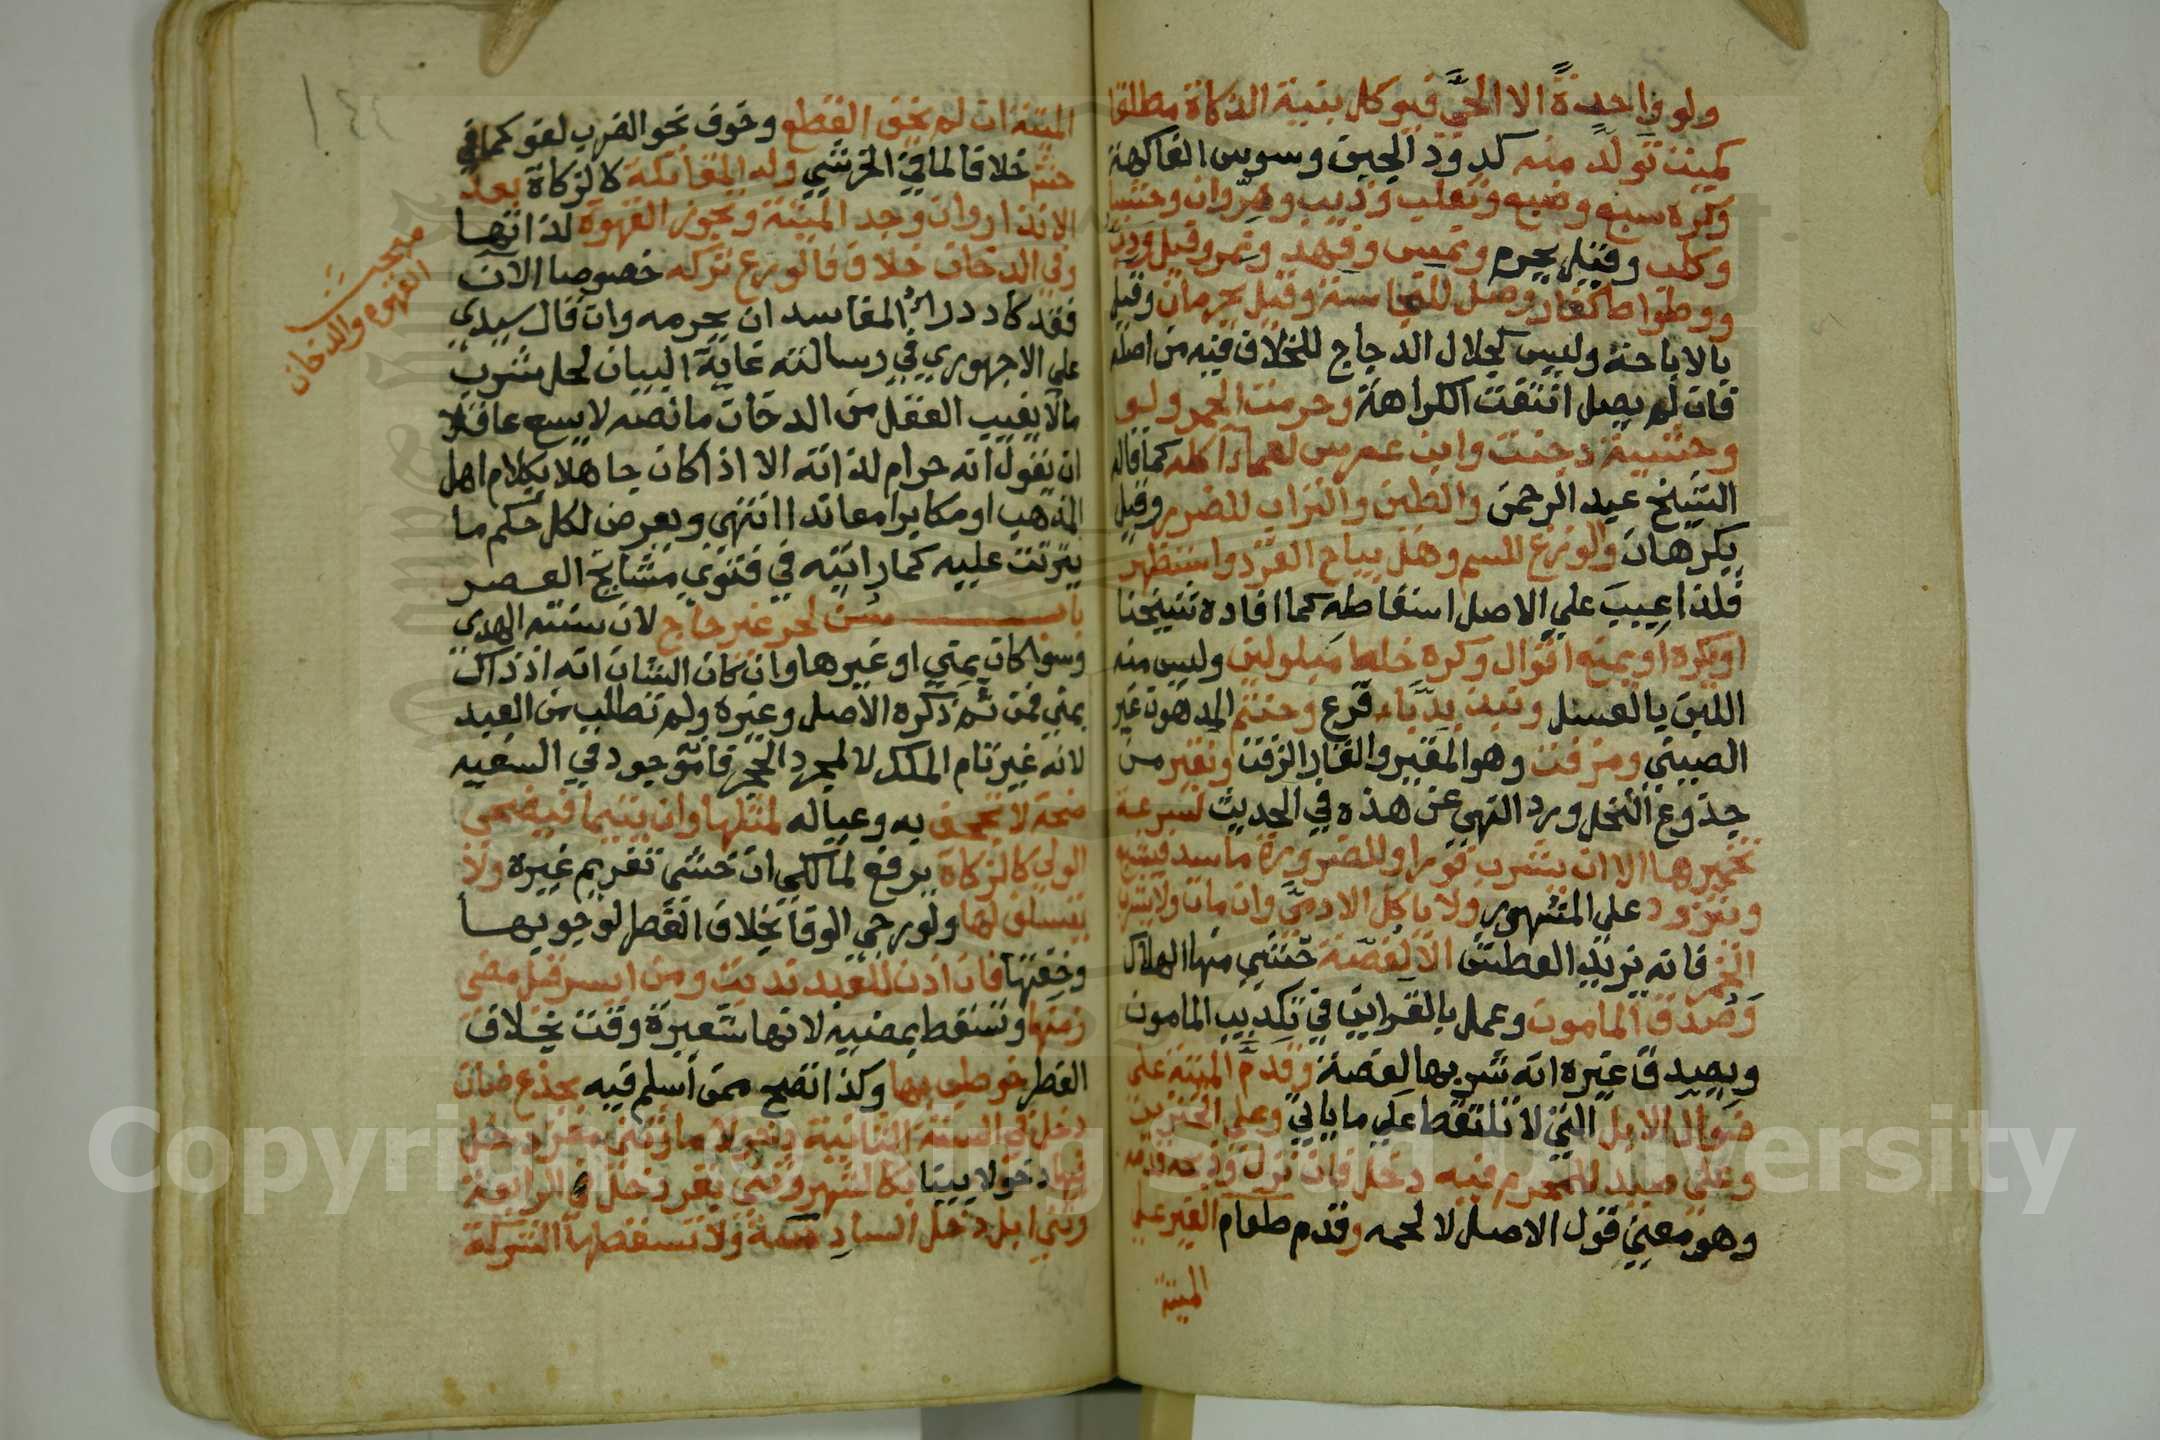 ولو واحدة الا الحي فيوكل بنية الذكاة مطلقا
كميت تولد منه كدود الجبن وسوس الفاكهة
وكره سبع وضبع وثعلب وذيب وهر وان وحشيا
وكلب وقيل يحرم ونمس وفهد ونمر وفيل ودب
ووطواط كفار وصل للنجاسة وقيل يحرمان وقيل
بالاباحة وليس كجلال الدجاج للخلاف فيه من اصله
فان لم يصل انتفت الكراهة وحرمت الحمر ولو
وحشية دجنت وابن عرس لعما اكله كما قاله
الشيخ عبد الرحمن والطين والتراب للضرر وقيل
يكرهان والوزغ للسم وهل يباح القرد واستظهر
فلذا عيب علي الاصل اسقاطه كما افاده شيخنا
او يكره او يمنع اقوال وكره خلط مبلولين وليس منه
اللبن بالعسل ونبذ بدباء قرع وحنتم المدهون غير
الصيني ومزفت وهو المقير والقار الزفت ونقير من
جذوع النخل ورد النهي عن هذه في الحديث لسرعة
تخميرها الا ان يشرب فورا وللضرورة ما سد فيشبع
ويتزود علي المشهور ولا ياكل الادمي وان مات ولا يشرب
الخمر فانه يزيد العطش الا لغصة خشي منها الهلاك
وصدق المامون وعمل بالقراين في تكذيب المامون
ويصدق غيره انه شربها لغصة وقدم الميتة علي
ضوال الابل التي لا تلتقط علي ما ياتي وعلي الخنزير
وعلي صيد للمحرم فيه دخل فان نزل وذبحه قدمه
وهو معني قول الاصل لا لحمه وقدم طعام الغير علي
الميتة
الميتة ان لم يخف القطع وخوف نحو الضرب لغو كما في
حش خلافا لما في الخرشي وله المقاتلة كالزكاة بعد
الانذار وان وجد الميتة وتجوز القهوة لذاتها
وفي الدخان خلاف فالورع تركه خصوصا الان
فقد كاد درا المفاسد ان يحرمه وان قال سيدي
علي الاجهوري في رسالته غاية البيان لحل شرب
مالا يغيب العقل من الدخان ما نصه لا يسع عاقلا
ان يقول انه حرام لذاته الا اذا كان جاهلا بكلام اهل
المذهب او مكابرا معاندا انتهي ويعرض لكل حكم ما
يترتب عليه كما رايته في فتوي مشايخ العصر
باب سن لحر غير حاج لان سنته الهدي
وسوا كان بمني او غيرها وان كان الشان انه اذ ذاك
بمني فمن ثم ذكره الاصل وغيره ولم تطلب من العبد
لانه غير تام الملك لا لمجرد الحجر فانه موجود في السفيه
ضحة لا تجحف به وعياله لمثلها وان يتيما فيضحي
الولي كالزكاة يرفع لمالكي ان خشي تغريم غيره ولا
يتسلف لها ولو رجي الوفا بخلاف الفطر لوجوبها
وخفتها فان اذن للعبد ندبت ومن ايسر قبل مضي
زمنها وتسقط بمضيه لانها شعيرة وقت بخلاف
الفطر خوطب بها وكذا تصح ممن اسلم فيه بجذع ضان
دخل في السنة الثانية دخولا ما وثني معز دخل
فيها دخولا بينا كالشهر وثني بقر دخل في الرابعة
وثني ابل دخل السادسة ولا تسقطها الشركة
مبحث
القهوه والدخان
Copyright © King Saud University